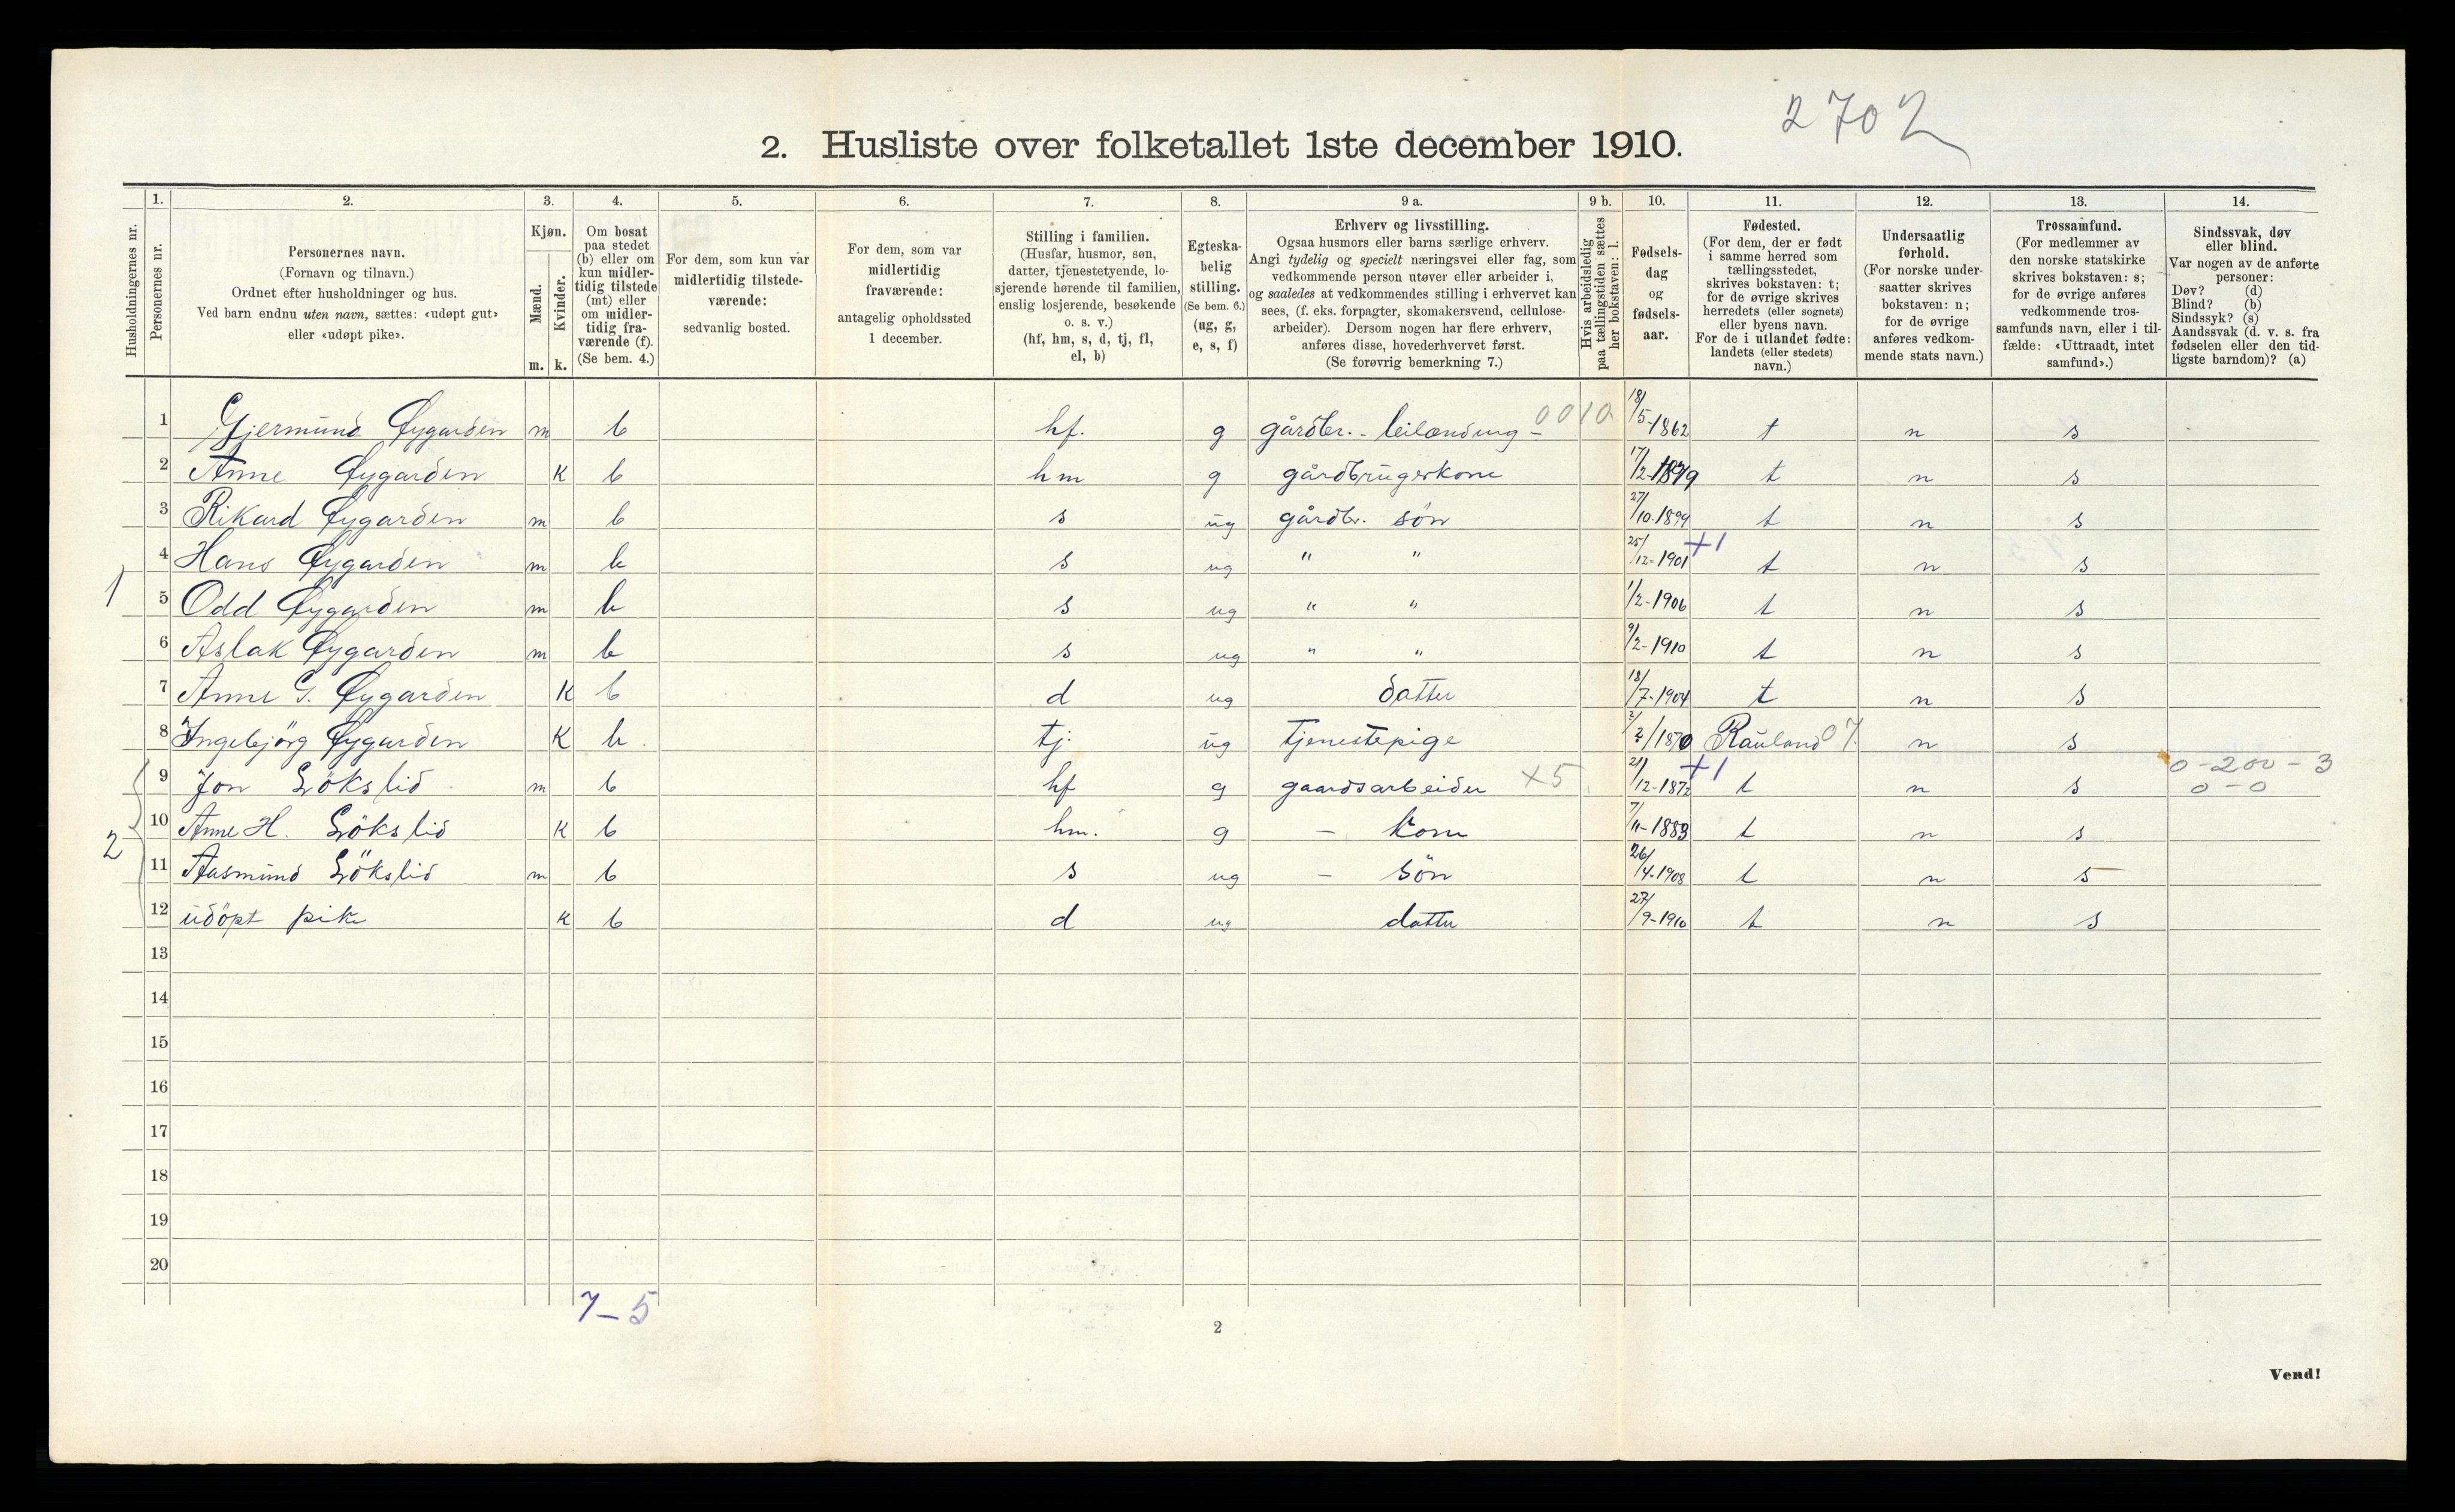 2702
2. Husliste over folketallet 1ste december 1910.
Husholdningernes nr.
1. Personernes nr.
2. Personernes navn. (Fornavn og tilnavn.) Ordnet efter husholdninger og hus. Ved barn endnu uten navn, sættes: «udøpt gut» eller «udøpt pike».
3. Kjøn. Mænd. m. Kvinder. k.
4. Om bosat paa stedet (b) eller om kun midlertidig tilstede (mt) eller om midlertidig fraværende (f). (Se bem. 4.)
5. For dem, som kun var midlertidig tilstedeværende: sedvanlig bosted.
6. For dem, som var midlertidig fraværende: antagelig opholdssted 1 december.
7. Stilling i familien. (Husfar, husmor, søn, datter, tjenestetyende, losjerende hørende til familien, enslig losjerende, besøkende o. s. v.) (hf, hm, s, d, tj, fl, el, b)
8. Egteskabelig stilling. (Se bem. 6.) (ug, g, e, s, f)
9 a. Erhverv og livsstilling. Ogsaa husmors eller barns særlige erhverv. Angi tydelig og specielt næringsvei eller fag, som vedkommende person utøver eller arbeider i, og saaledes at vedkommendes stilling i erhvervet kan sees, (f. eks. forpagter, skomakersvend, cellulosearbeider). Dersom nogen har flere erhverv, anføres disse, hovederhvervet først. (Se forøvrig bemerkning 7.)
9 b. Hvis arbeidsledig paa tællingstiden sættes her bokstaven: l.
10. Fødselsdag og fødselsaar.
11. Fødested. (For dem, der er født i samme herred som tællingsstedet, skrives bokstaven: t; for de øvrige skrives herredets (eller sognets) eller byens navn. For de i utlandet fødte: landets (eller stedets) navn.)
12. Undersaatlig forhold. (For norske undersaatter skrives bokstaven: n; for de øvrige anføres vedkommende stats navn.)
13. Trossamfund. (For medlemmer av den norske statskirke skrives bokstaven: s; for de øvrige anføres vedkommende trossamfunds navn, eller i tilfælde: «Uttraadt, intet samfund».)
14. Sindssvak, døv eller blind. Var nogen av de anførte personer: Døv? (d) Blind? (b) Sindssyk? (s) Aandssvak (d. v. s. fra fødselen eller den tidligste barndom)? (a)
1 Gjermund Øygarden m b hf. g gårdbr. - leilænding - 0010 18/5-1862 t n s
2 Anne Øygarden K b hm g gårdbrugerkone 17/2-1879 t n s
3 Rikard Øygarden m b s ug gårdbr. sön 27/10-1899 t n s
4 Hans Øygarden m b s ug " " 25/12-1901 +1 t n s
1 5 Odd Øygarden m b s ug " " 1/2-1906 t n s
6 Aslak Øygarden m b s ug " " 9/2-1910 t n s
7 Anne G. Øygarden K b d ug datter 18/7-1904 t n s
8 Ingebjörg Øygarden K b tj. ug Tjenestepige 2/2/1870 Rauland 07 n s
9 Jon Lökslid m b hf g gaardsarbeider x5 21/12-1872 +1 t n s 0-200-3 0-0
2 10 Anne H. Lökslid K b hm. g - kone 7/11-1883 t n s
11 Aasmund Lökslid m b s ug - sön 26/4-1908 t n s
12 udöpt pike K b d ug datter 27/9-1910 t n s
13
14
15
16
17
18
19
20
7-5
2
Vend!